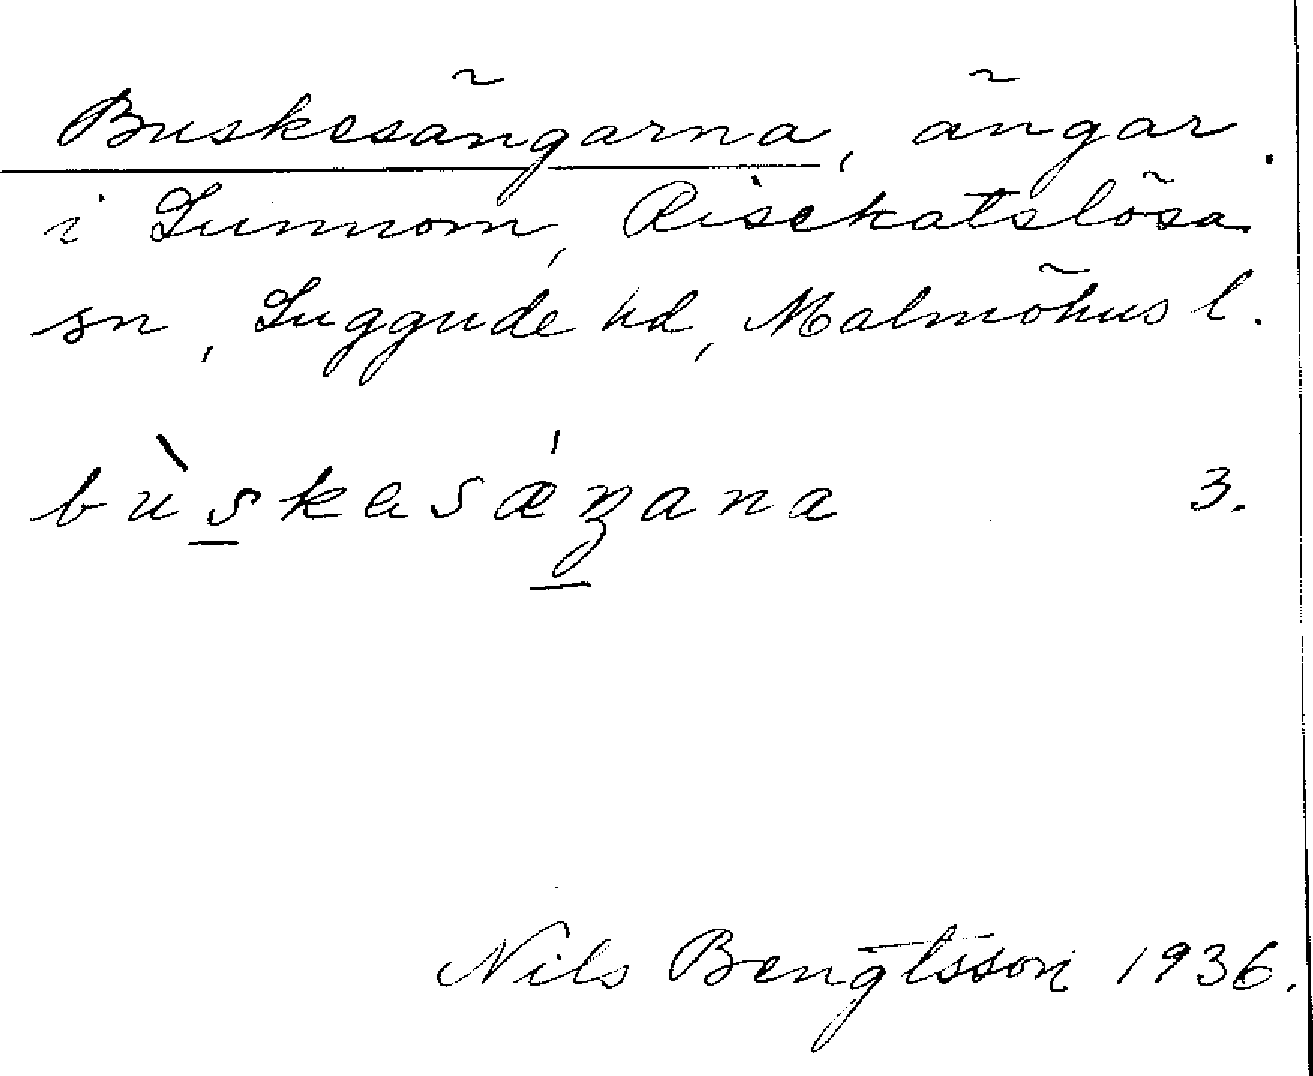 Buskesängarna, ängar
i Lunnom, Risekatslösa
sn, Luggude hd, Malmöhus l.
bùskasǽŋana 3.
Nils Bengtsson 1936.